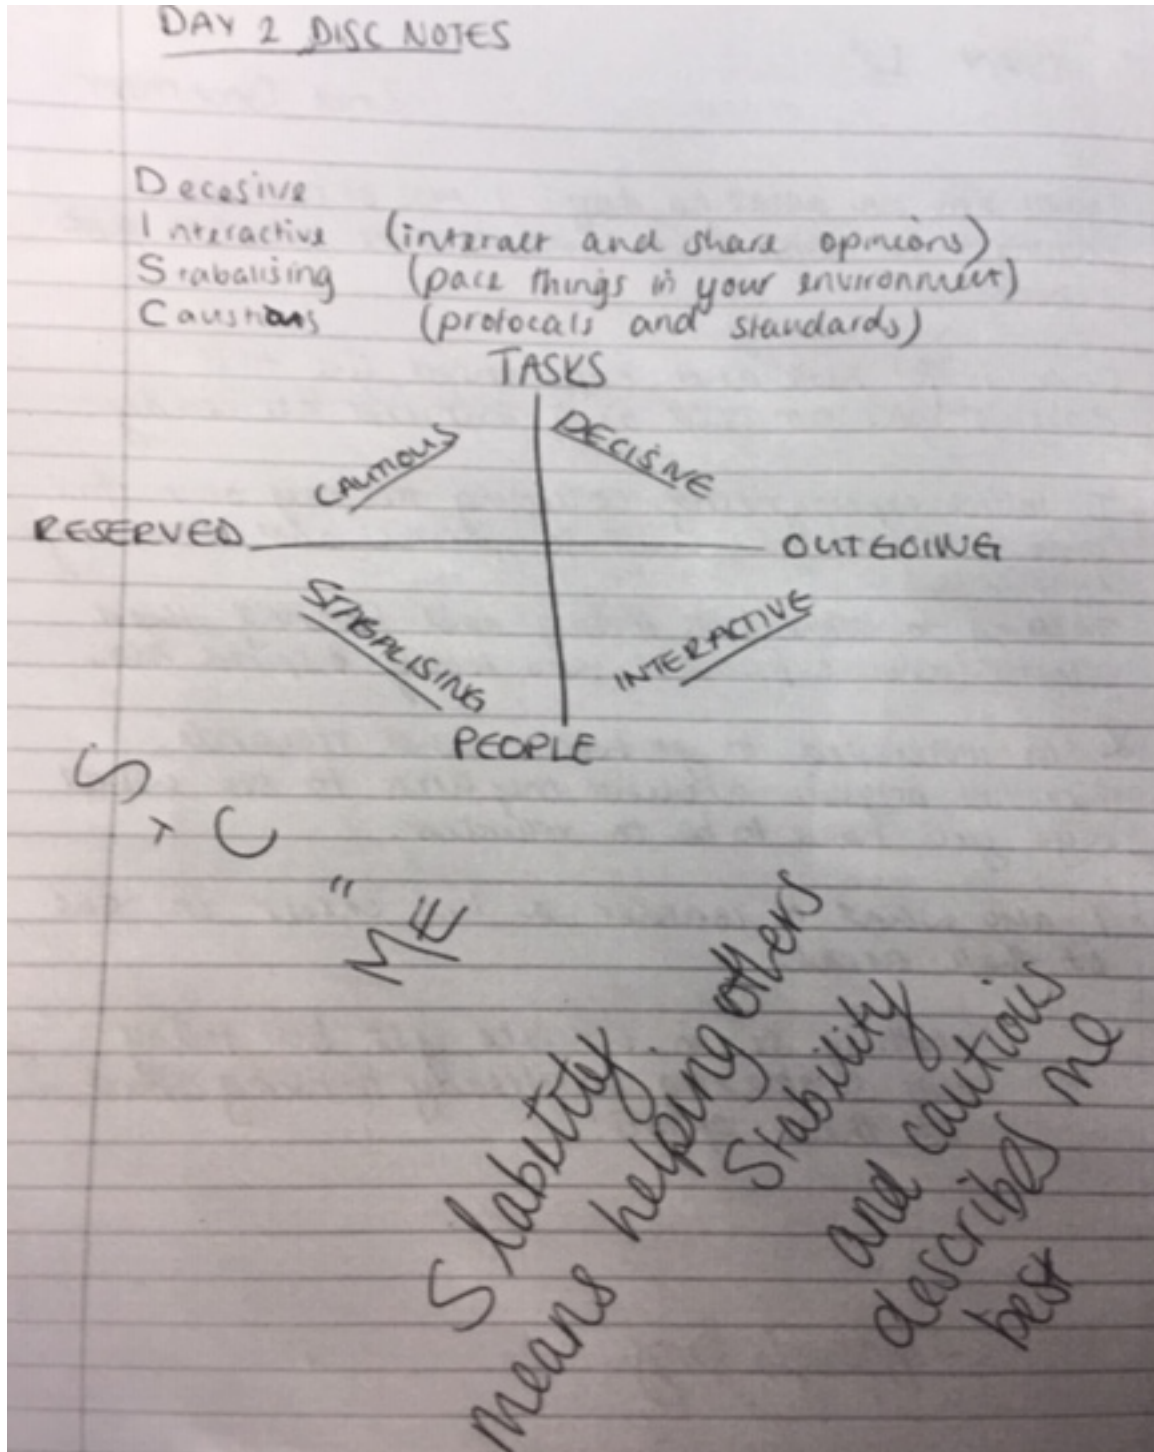 DAY 2 DISC NOTES
Decesive
Interactive (interact and share opinions)
Stabalising (pace things in your environment)
Caustions (protocals and standards)
TASKS
CAUTIOUS DECISIVE
RESERVED OUTGOING
STABALISING INTERACTIVE
PEOPLE
S + C
=
ME
Stability
means helping others
Stability
and cautious
describes me
best